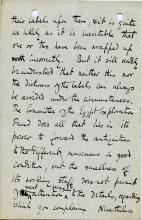 their labels upon them, & it is quite
as likely as it is inevitable that
one or two have been wrapped up
with incorrectly. But it will easily
be understood that neither this nor
the dirtiness of the labels can always
be avoided under the circumstances.
The Committee of the Egypt Exploration
Fund does all that lies in its
power to forward the antiquities
to the different museums in good
condition, but the smallness of
its working staff does not permit
the details, regarding
which you complain. Nevertheless